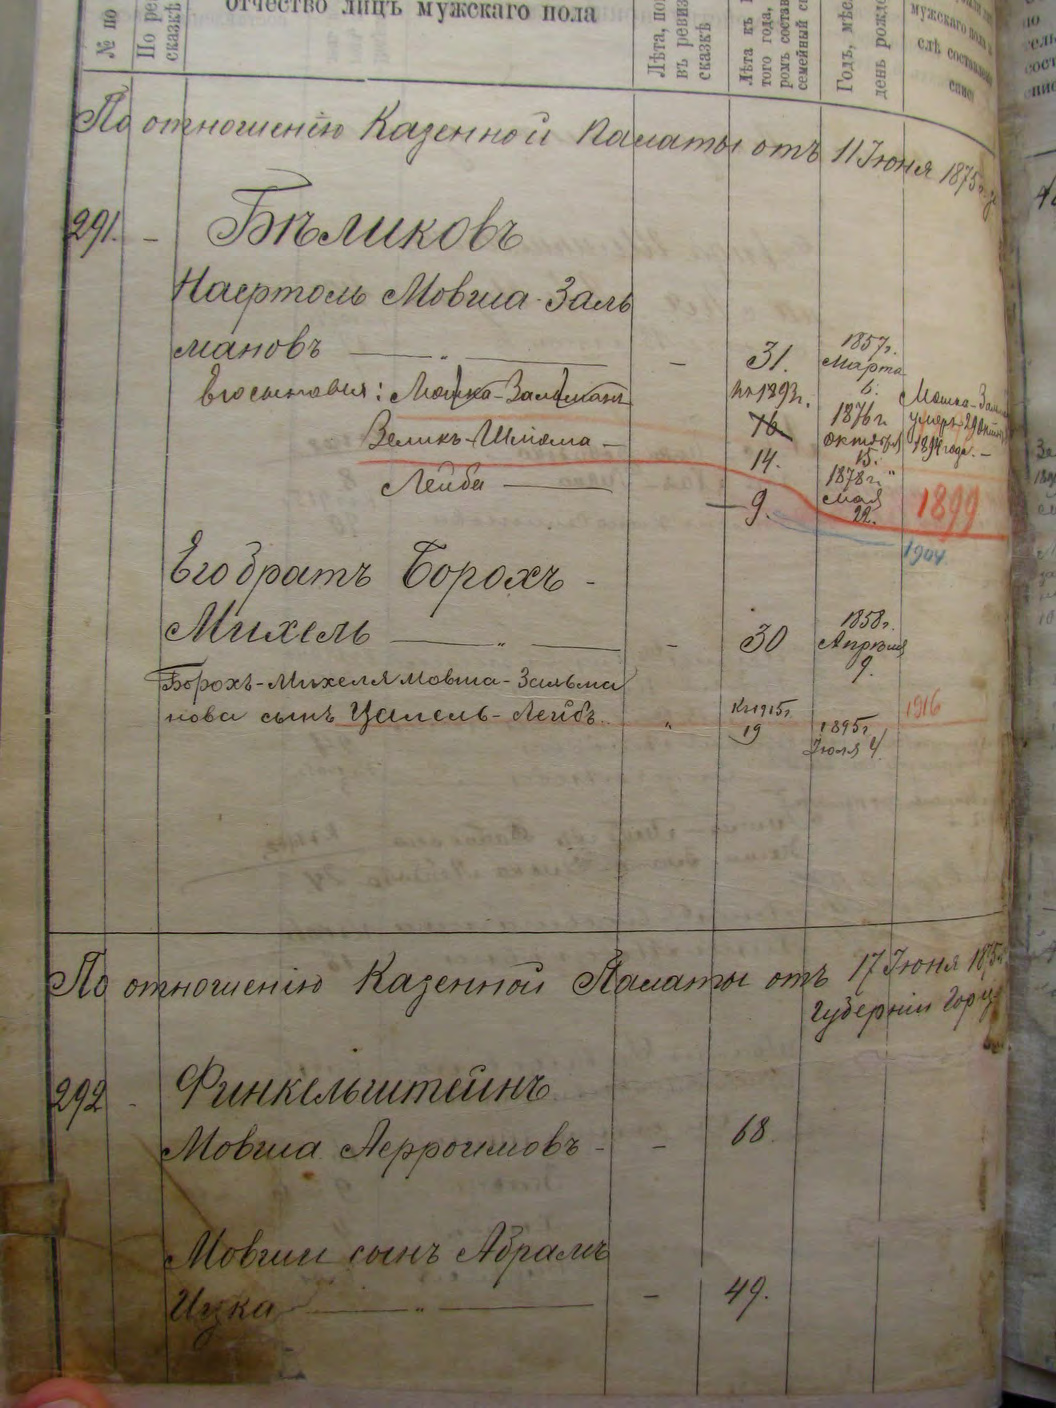 отчество лицъ мужскаго пола
№ по
По ре
сказкѣ
Лѣта, по
въ ревиз
сказкѣ
Лѣта къ
того года,
ромъ состав
семейный сп
Годъ, мѣс
день рожде
мужскаго пола
слѣ составлен
спис
По отношенію Казенной Палаты отъ 11 Іюня 1875
291. - Бѣликовъ
Наертоль Мовша-Заль
мановъ — " — - 31. 1857г. Марта 6.
Его сыновья: Мошка-Залманъ къ 1893г. 16 1876г. октября 15.
Мошка-Залм
умеръ 29 Октяб
1894 года. -
Зеликъ-Шлёма - 14. 1878г. мая 22.
Лейба — 9. 1899
1904
Его братъ Борохъ -
Михель — " — - 30 1858г. Апрѣля 9.
Борохъ-Михеля Мовша-Зальма
нова сынъ Цалель-Лейбъ " Къ 1915г. 19 1895г. Іюля 4. 1916
По отношенію Казенной Палаты отъ 17 Іюня 1875
Губерніи Гор
292 - Финкельштейнъ
Мовша Аерроимовъ - - 68.
Мовши сынъ Абрамъ
Ицка — " — - 49.